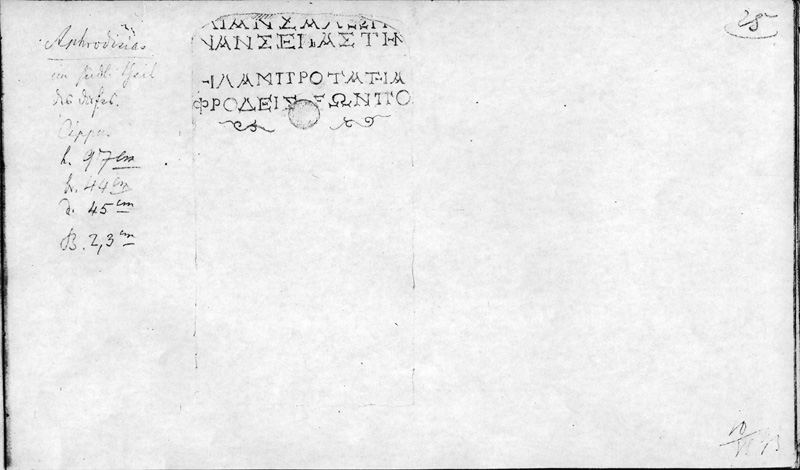 Aphrodisias
im südl. Theil
des Dorfes.
Cippus.
h. 97 cm
b. 44 cm
d. 45 cm
B. 2,3 cm
ΝΑΝΣΕΒΑΣΤΗΝ
ΗΛΑΜΠΡΟΤΑΤΗΑ
ΦΡΟΔΕΙΣΕΩΝΠΟ
25